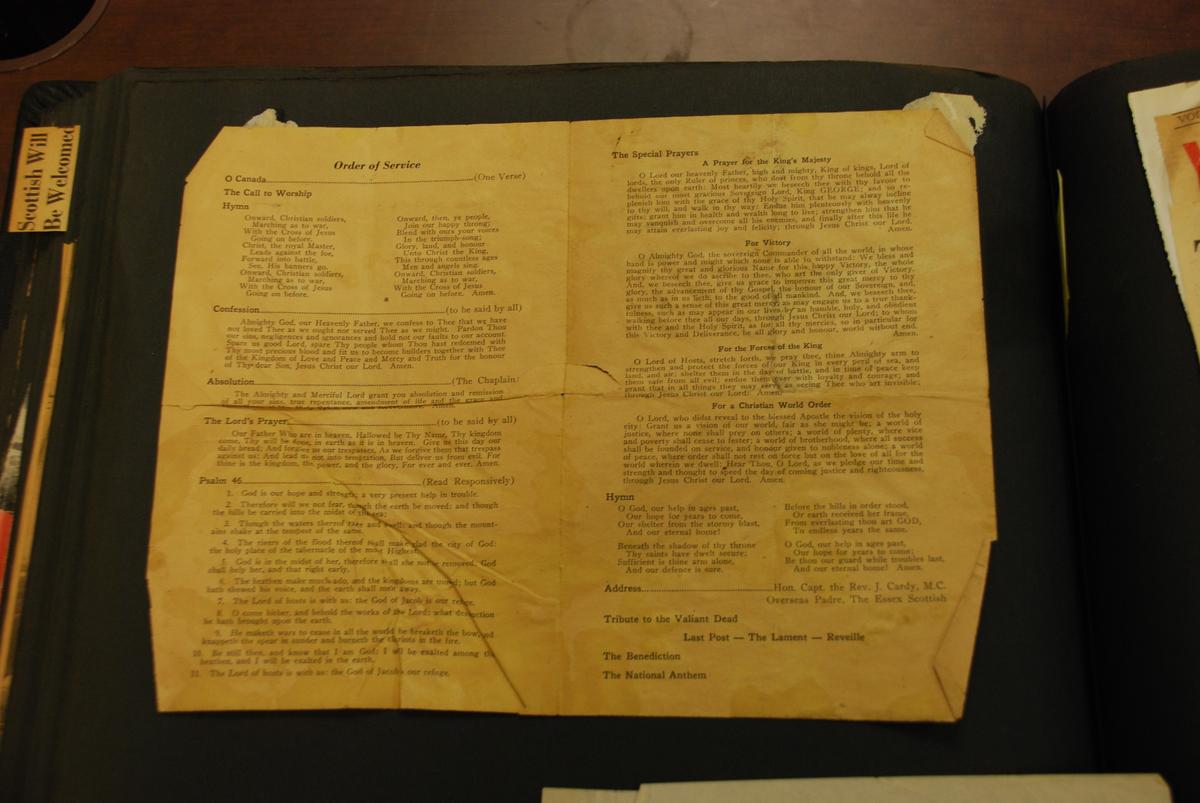 Scottish Will
Be Welcomed
Order of Service
O Canada (One Verse)
The Call to Worship
Hymn
Onward, Christian soldiers,
Marching as to war,
With the Cross of Jesus
Going on before.
Christ, the royal Master,
Leads against the foe,
Forward into battle,
See, His banners go.
Onward, Christian soldiers,
Marching as to war,
With the Cross of Jesus
Going on before.
Onward, then, ye people,
Join our happy throng;
Blend with ours your voices
In the triumph-song;
Glory, land, and honour
Unto Christ the King,
This through countless ages
Men and angels sing.
Onward, Christian soldiers,
Marching as to war,
With the Cross of Jesus
Going on before. Amen.
Confession (to be said by all)
Almighty God, our Heavenly Father, we confess to Thee that we have
not loved Thee as we ought nor served Thee as we might. Pardon Thou
our sins, negligences and ignorances and hold not our faults to our account.
Spare us good Lord, spare Thy people whom Thou hast redeemed with
Thy most precious blood and fit us to become builders together with Thee
of the Kingdom of Love and Peace and Mercy and Truth for the honour
of Thy dear Son, Jesus Christ our Lord. Amen.
Absolution (The Chaplain)
The Almighty and Merciful Lord grant you absolution and remission
of all your sins, true repentance, amendment of life and the grace and
Amen.
The Lord's Prayer (to be said by all)
Our Father Who are in heaven, Hallowed be Thy Name, Thy kingdom
come, Thy will be done, in earth as it is in heaven. Give us this day our
daily bread; And forgive us our trespasses, As we forgive them that trespass
against us; And lead us not into temptation, But deliver us from evil. For
thine is the kingdom, the power, and the glory, For ever and ever. Amen.
Psalm 46 (Read Responsively)
1. God is our hope and strength; a very present help in trouble.
2. Therefore will we not fear, though the earth be moved: and though
the hills be carried into the midst of the sea;
3. Though the waters thereof rage and swell: and though the mount-
ains shake at the tempest of the same.
4. The rivers of the flood thereof shall make glad the city of God:
the holy place of the tabernacle of the most Highest.
5. God is in the midst of her, therefore shall she not be removed: God
shall help her, and that right early.
6. The heathen make much ado, and the kingdoms are moved; but God
hath shewed his voice, and the earth shall melt away.
7. The Lord of hosts is with us: the God of Jacob is our refuge.
8. O come hither, and behold the works of the Lord: what destruction
he hath brought upon the earth.
9. He maketh wars to cease in all the world he breaketh the bow, and
knappeth the spear in sunder and burneth the chariots in the fire.
10. Be still then, and know that I am God: I will be exalted among the
heathen, and I will be exalted in the earth.
11. The Lord of hosts is with us: the God of Jacob is our refuge.
The Special Prayers
A Prayer for the King's Majesty
O Lord our heavenly Father, high and mighty, King of kings, Lord of
lords, the only Ruler of princes, who dost from thy throne behold all the
dwellers upon earth: Most heartily we beseech thee with thy favour to
behold our most gracious Sovereign Lord, King GEORGE; and so re-
plenish him with the grace of thy Holy Spirit, that he may alway incline
to thy will, and walk in thy way: Endue him plenteously with heavenly
gifts; grant him in health and wealth long to live; strengthen him that he
may vanquish and overcome all his enemies, and finally after this life he
may attain everlasting joy and felicity; through Jesus Christ our Lord.
Amen.
For Victory
O Almighty God, the sovereign Commander of all the world, in whose
hand is power and might which none is able to withstand: We bless and
magnify thy great and glorious Name for this happy Victory, the whole
glory whereof we do ascribe to thee, who art the only giver of Victory.
And, we beseech thee, give us grace to improve this great mercy to thy
glory, the advancement of thy Gospel, the honour of our Sovereign, and,
as much as in us lieth, to the good of all mankind. And, we beseech thee,
give us such a sense of this great mercy, as may engage us to a true thank-
fulness, such as may appear in our lives by an humble, holy, and obedient
walking before thee all our days, through Jesus Christ our Lord; to whom
with thee and the Holy Spirit, as for all thy mercies, so in particular for
this Victory and Deliverance, be all glory and honour, world without end.
Amen.
For the Forces of the King
O Lord of Hosts, stretch forth, we pray thee, thine Almighty arm to
strengthen and protect the forces of our King in every peril of sea, and
land, and air; shelter them in the day of battle, and in time of peace keep
them safe from all evil; endue them ever with loyalty and courage; and
grant that in all things they may serve as seeing Thee who art invisible;
through Jesus Christ our Lord. Amen.
For a Christian World Order
O Lord, who didst reveal to the blessed Apostle the vision of the holy
city: Grant us a vision of our world, fair as she might be; a world of
justice, where none shall prey on others; a world of plenty, where vice
and poverty shall cease to fester; a world of brotherhood, where all success
shall be founded on service, and honour given to nobleness alone; a world
of peace, where order shall not rest on force but on the love of all for the
world wherein we dwell: Hear Thou, O Lord, as we pledge our time and
strength and thought to speed the day of coming justice and righteousness,
through Jesus Christ our Lord. Amen.
Hymn
O God, our help in ages past,
Our hope for years to come,
Our shelter from the stormy blast,
And our eternal home!
Beneath the shadow of thy throne
Thy saints have dwelt secure;
Sufficient is thine arm alone,
And our defence is sure.
Before the hills in order stood,
Or earth received her frame,
From everlasting thou art GOD,
To endless years the same.
O God, our help in ages past,
Our hope for years to come;
Be thou our guard while troubles last,
And our eternal home! Amen.
Address Hon. Capt. the Rev. J. Cardy, M.C.
Overseas Padre, The Essex Scottish
Tribute to the Valiant Dead
Last Post — The Lament — Reveille
The Benediction
The National Anthem